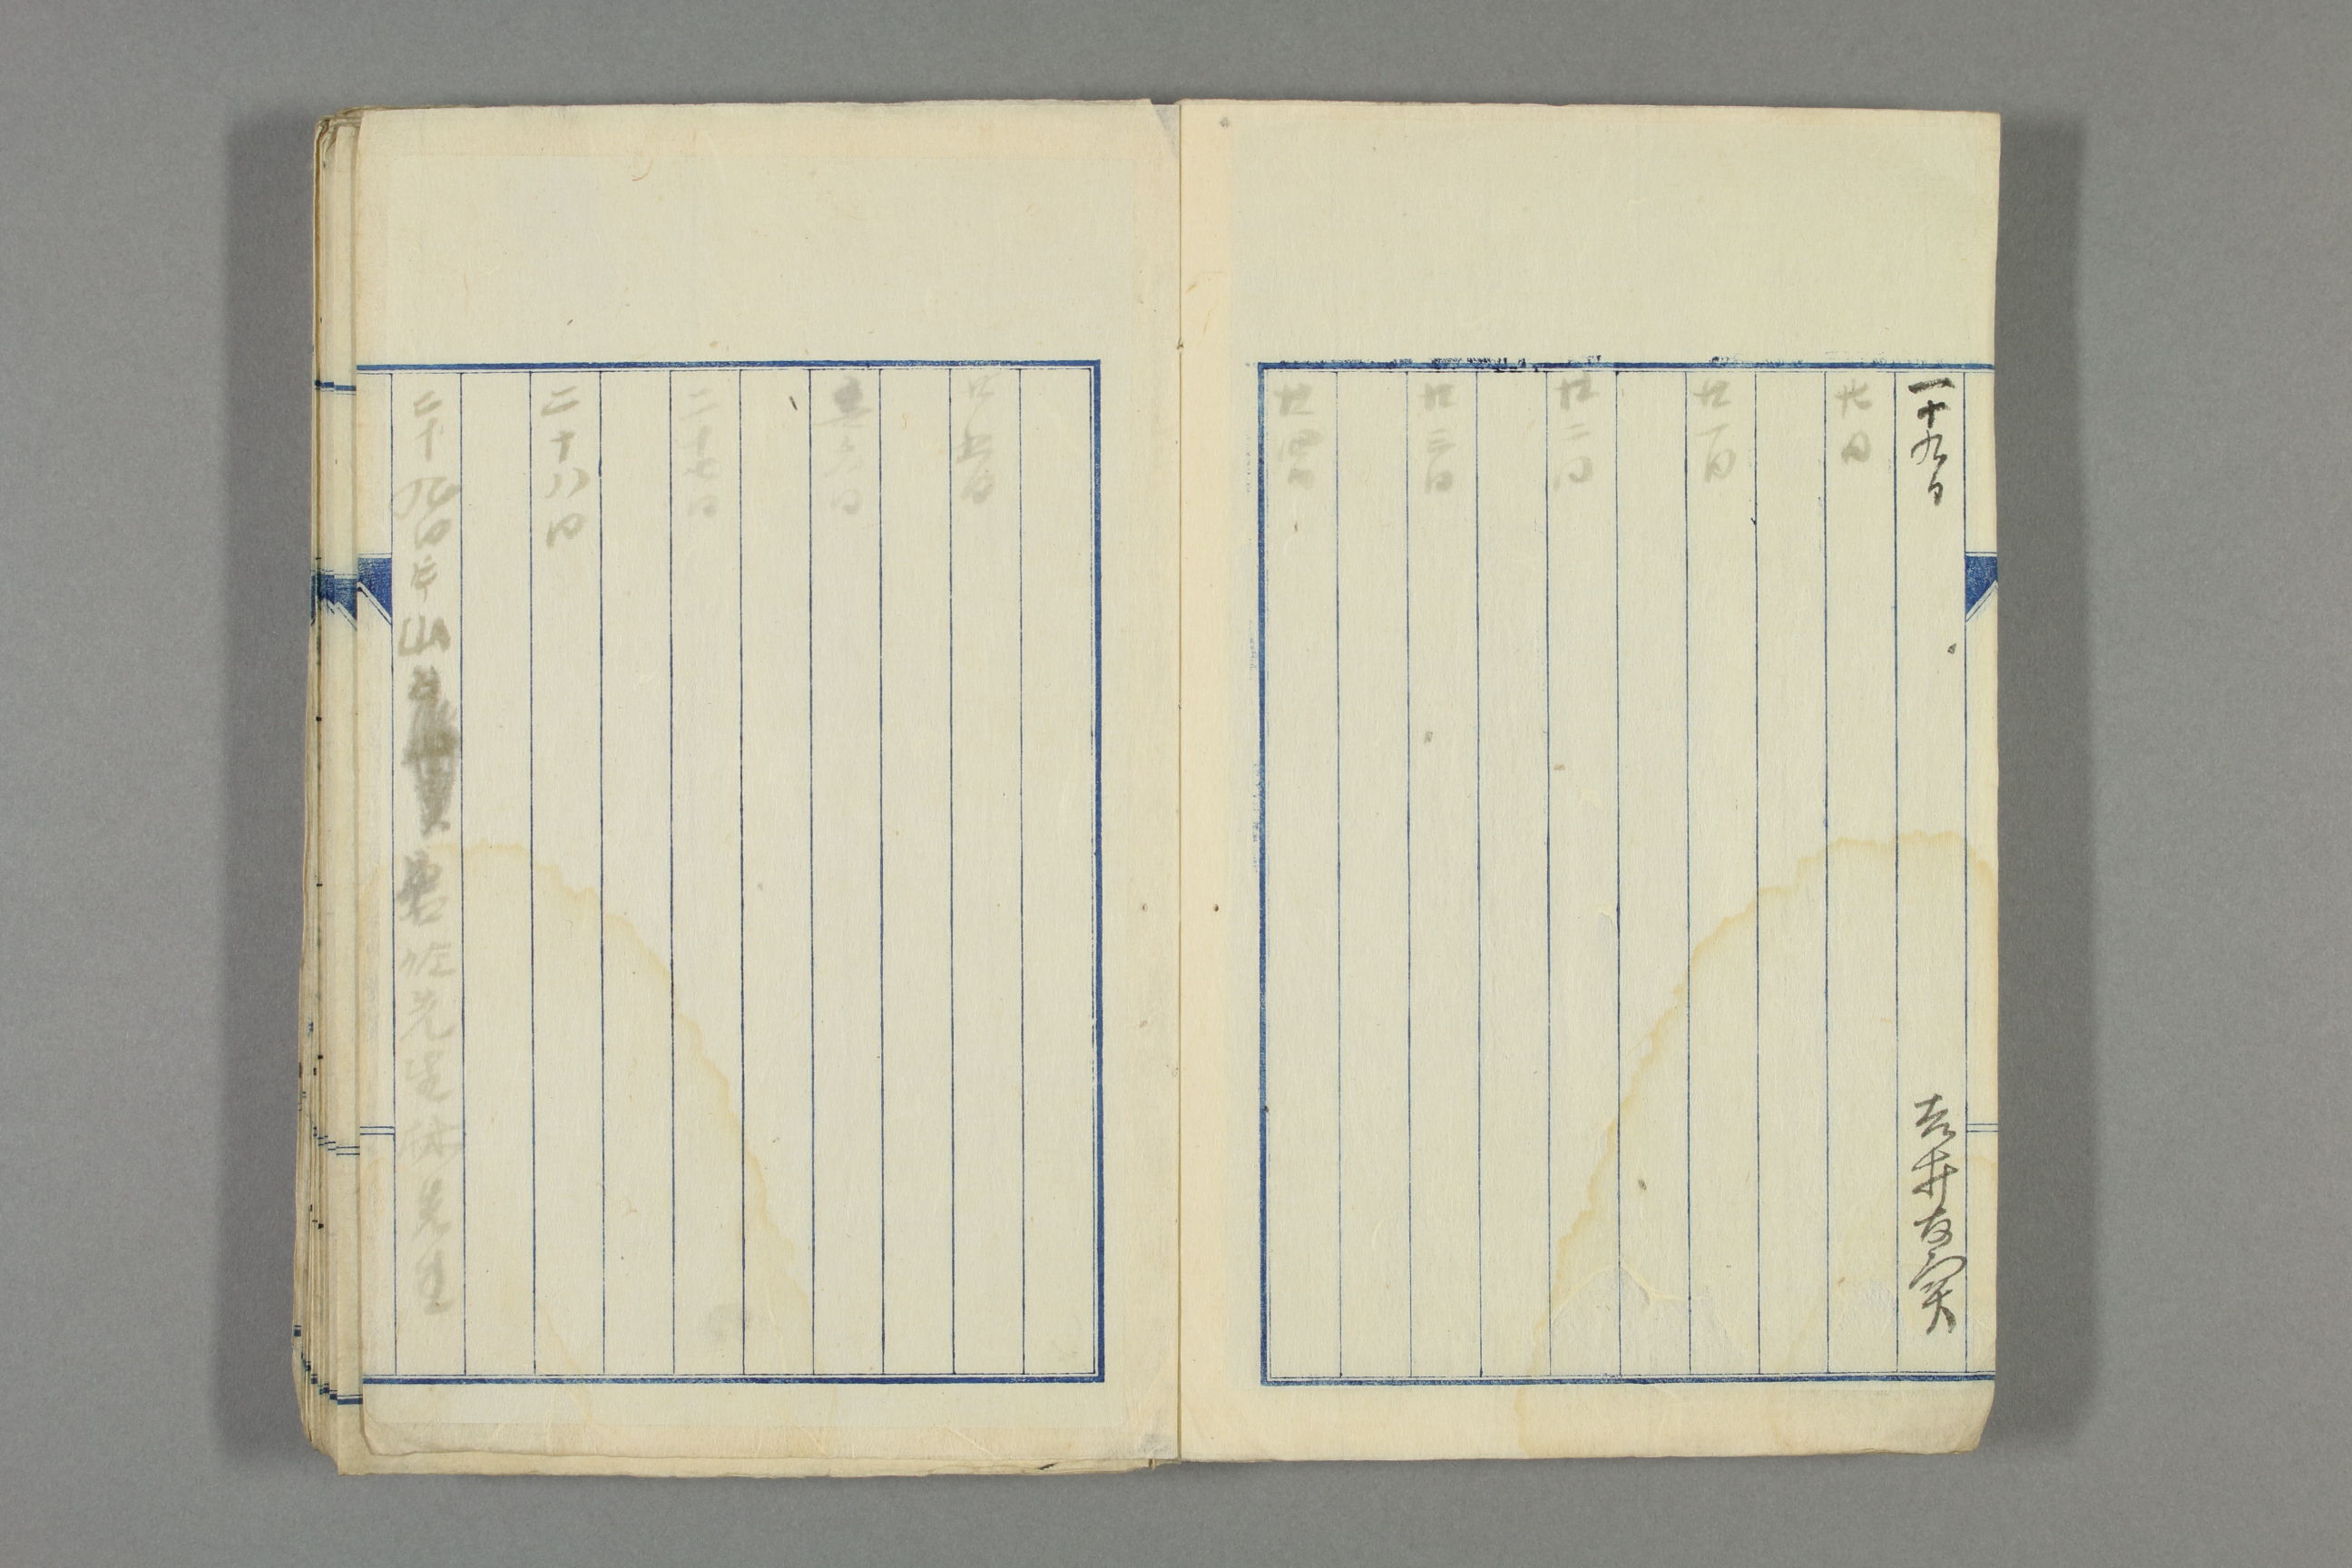 一十九日 吉井友実
廿日
廿一日
廿二日
廿三日
廿四日
廿五日
廿六日
二十七日
二十八日
二十九日 山 佐先生 先生